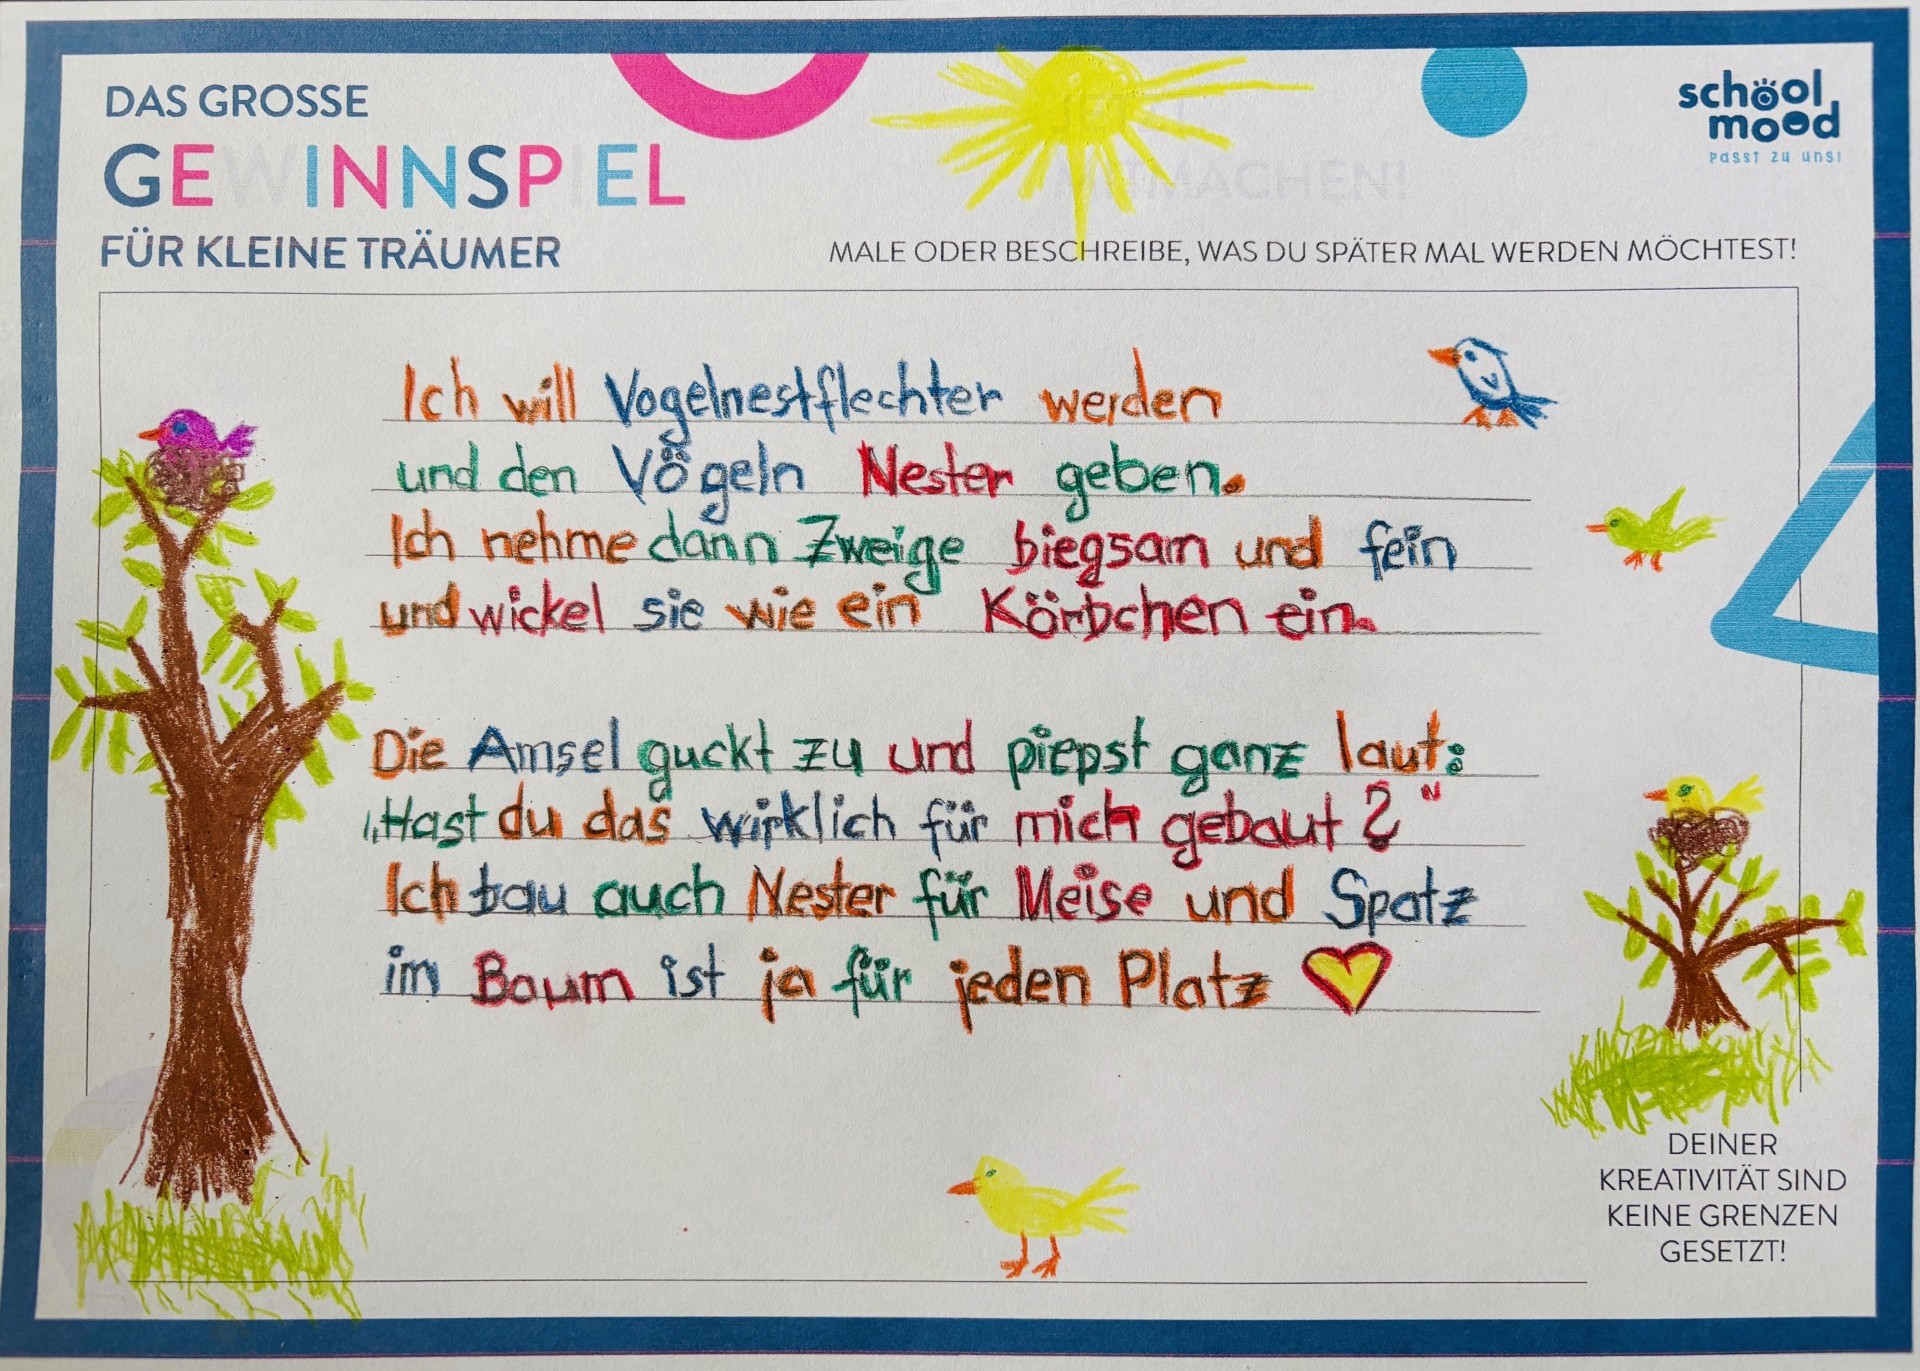 DAS GROSSE
GEWINNSPIEL
FÜR KLEINE TRÄUMER
school
mood
passt zu uns!
MITMACHEN!
MALE ODER BESCHREIBE, WAS DU SPÄTER MAL WERDEN MÖCHTEST!
Ich will Vogelnestflechter werden
und den Vögeln Nester geben.
Ich nehme dann Zweige biegsam und fein
und wickel sie wie ein Körbchen ein.
Die Amsel guckt zu und piepst ganz laut:
„Hast du das wirklich für mich gebaut?"
Ich bau auch Nester für Meise und Spatz
im Baum ist ja für jeden Platz
DEINER
KREATIVITÄT SIND
KEINE GRENZEN
GESETZT!